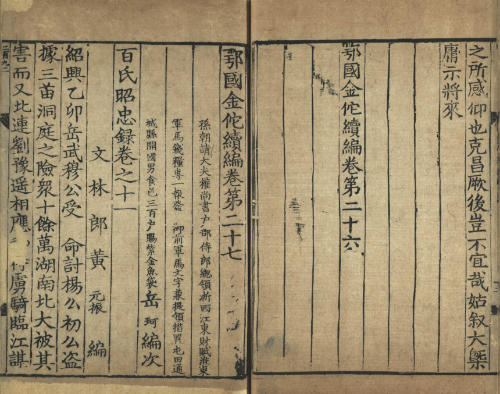 之所感仰也克昌厥後豈不宜哉姑叙大槩
庸示將來
鄂國金佗續編卷第二十六
鄂國金佗續編卷第二十七
孫朝請大夫權尚書户部侍郎總領浙西江東財賦淮東
軍馬錢糧專一報發 御前軍馬文字兼提領措置屯田通
城縣開國男食邑三百户賜紫金魚袋岳 珂 編次
百氏昭忠録卷之十一
文林郎黄 元振 編
紹興乙卯岳武穆公受 命討楊么初么盗
據三苗洞庭之險衆十餘萬湖南北大被其
害而又北連劉豫遥相應 虜騎臨江謀